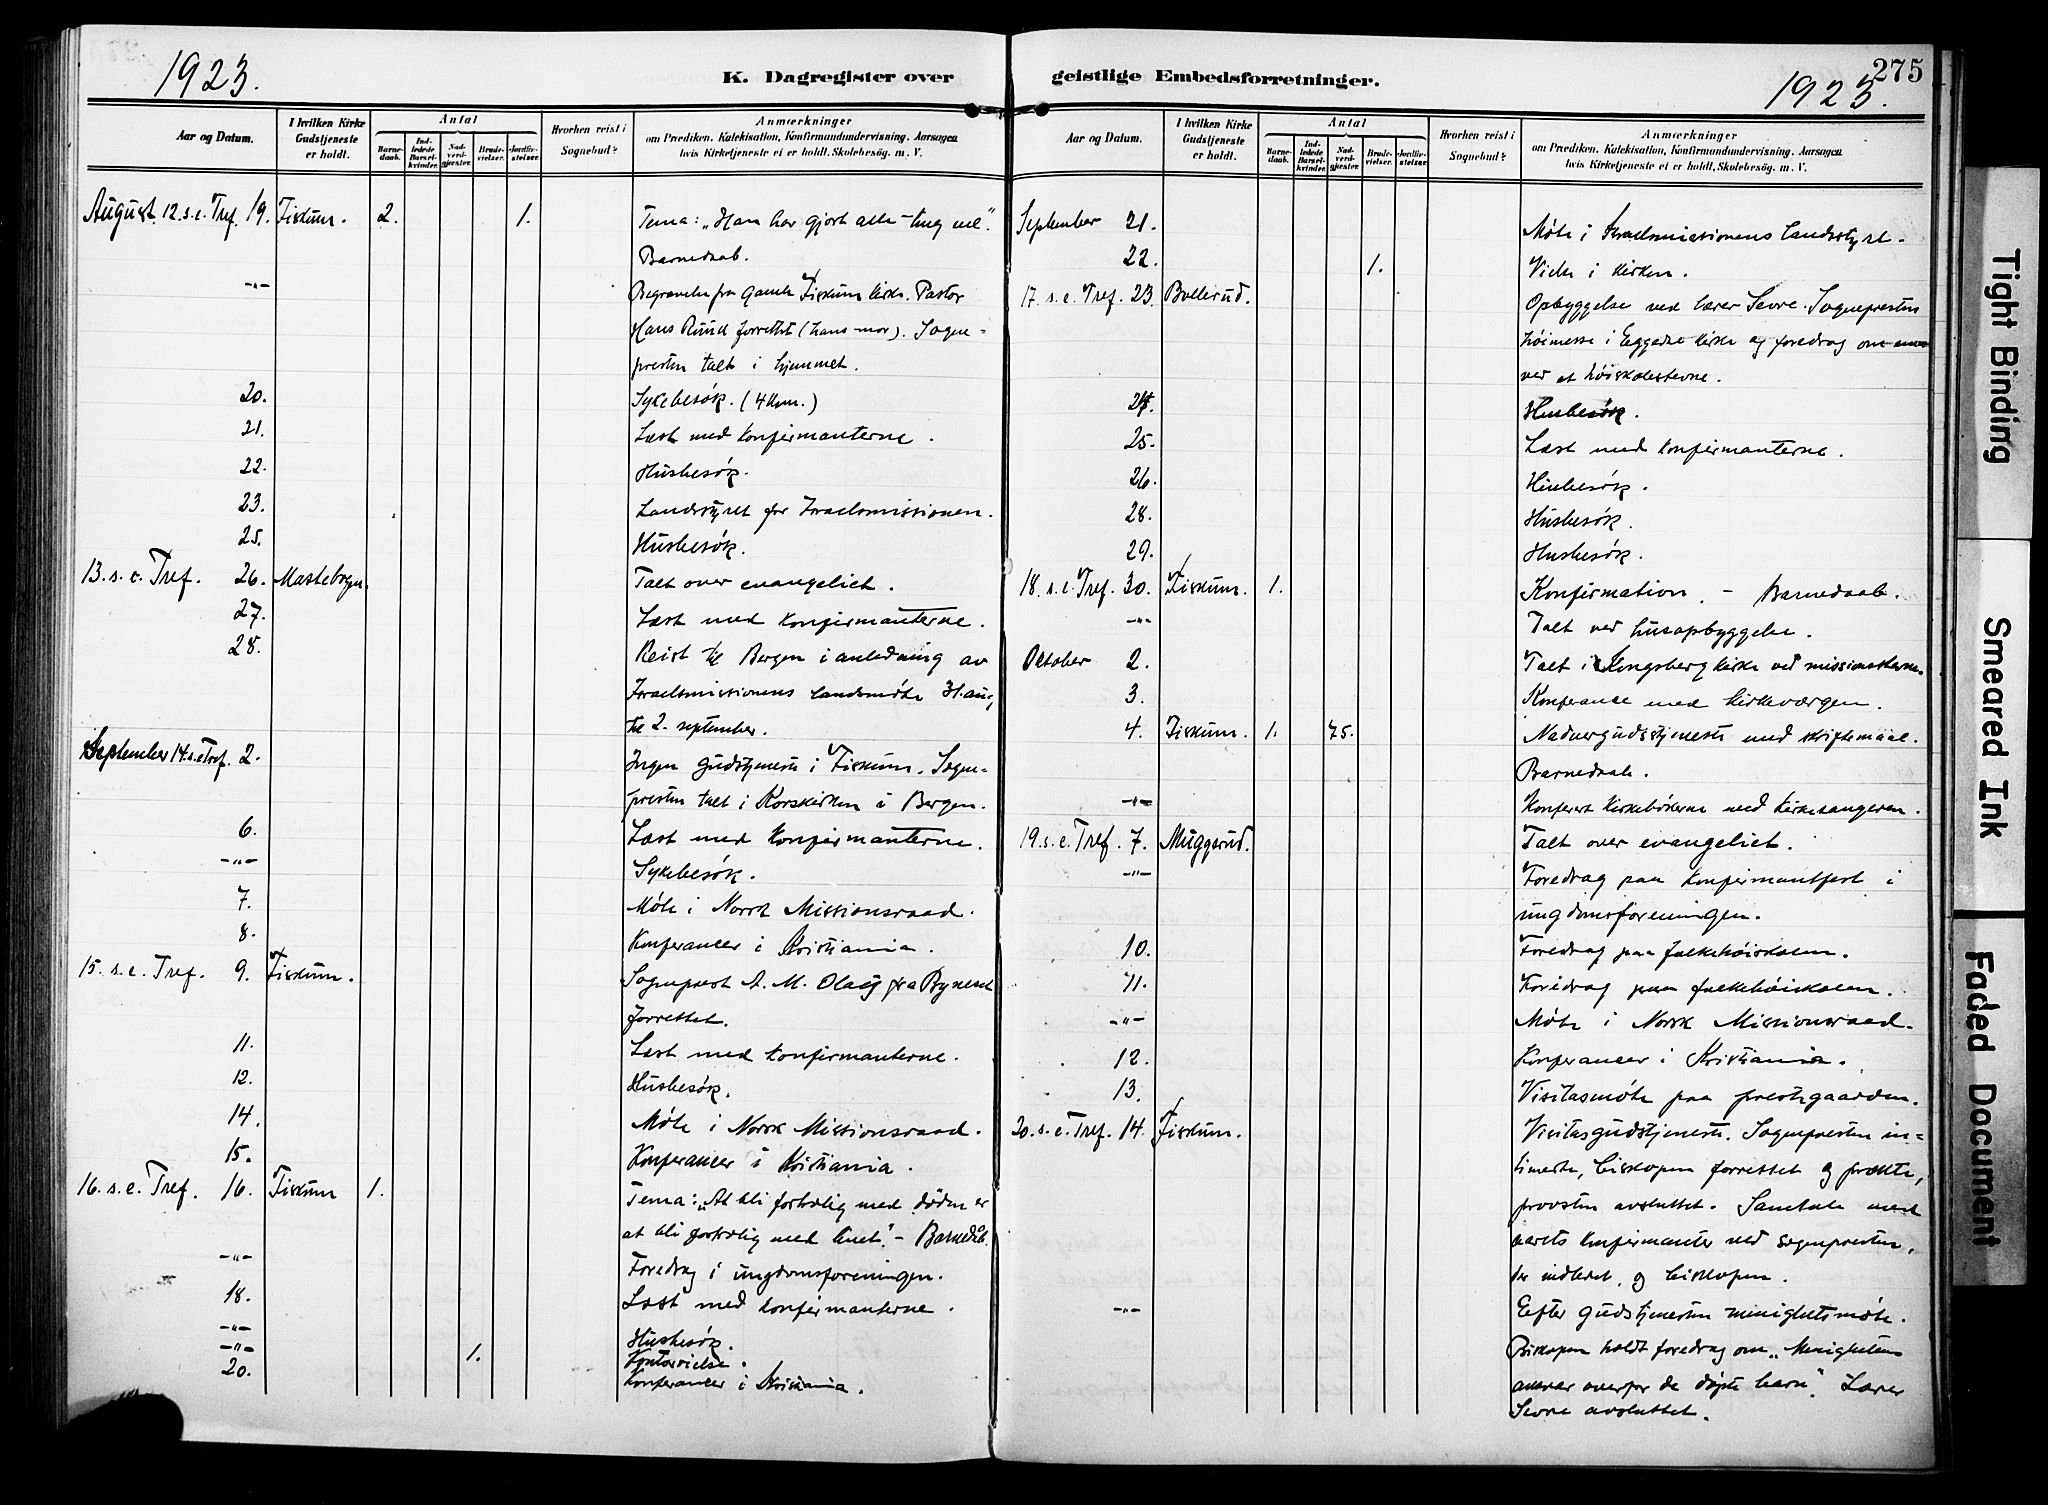 1923.
K. Dagregister over
Aar og Datum.
I hvilken Kirke Gudstjeneste er holdt.
Antal
Barnedaab.
Indledede Barselkvinder.
Nadverdgjester.
Brudevielser.
Jordfæstelser.
Hvorhen reist i Sognebud?
Anmærkninger
om Prædiken, Katekisation, Konfirmandundervisning, Aarsagen
hvis Kirketjeneste ei er holdt, Skolebesög. m. V.
August 12. s. e. Tref. 19. Fiskum. 2. 1. Tema: „Han har gjort alle ting vel".
Barnedaab.
-"- Begravelse fra Gamle Fiskum kirke. Pastor
Hans Ruud forrettet (hans mor). Sogne-
presten talt i hjemmet.
20. Sykebesök. (4 km.)
21. Læst med konfirmanterne.
22. Husbesök.
23. Landsstyret for Israelsmissionen.
25. Husbesök.
13. s. e. Tref. 26. Mastebogen. Talt over evangeliet.
27. Læst med konfirmanterne.
28. Reist til Bergen i anledning av
Israelsmissionens landsmøte 31. aug.
til 2. september.
September 14. s. e. Tref. 2. Ingen gudstjeneste i Fiskum. Sogne-
presten talt i Korskirken i Bergen.
6. Læst med konfirmanterne.
-"- Sykebesök.
7. Møte i Norsk Missionsraad.
8. Konferancer i Kristiania.
15. s. e. Tref. 9. Fiskum. Sogneprest A. M. Olay fra Byneset
forrettet.
11. Læst med konfirmanterne.
12. Husbesök.
14. Møte i Norsk Missionsraad.
15. Konferancer i Kristiania.
16. s. e. Tref. 16. Fiskum 1. Tema: „At bli fortrolig med døden er
at bli fortrolig med livet". - Barnedåb.
-"- Foredrag i ungdomsforeningen.
18. Læst med konfirmanterne.
-"- Husbesök.
-"- 1. Kontorvielse.
20. Konferancer i Kristiania.
275
1923.
geistlige Embedsforretninger.
Aar og Datum.
I hvilken Kirke Gudstjeneste er holdt.
Antal
Barnedaab.
Indledede Barselkvinder.
Nadverdgjester.
Brudevielser.
Jordfæstelser.
Hvorhen reist i Sognebud?
Anmærkninger
om Prædiken, Katekisation, Konfirmandundervisning, Aarsagen
hvis Kirketjeneste ei er holdt, Skolebesög. m. V.
September 21. Møte i Israelsmissionens landsstyre.
22. 1. Vielse i kirken.
17. s. e. Tref. 23. Bollerud. Opbyggelse ved lærer Sevre. Sognepresten
høimesse i Eggedal kirke og foredrag om
ved et høiskolestevne.
24. Husbesök.
25. Læst med konfirmanterne.
26. Husbesök.
28. Husbesök.
29. Husbesök.
18. s. e. Tref. 30. Fiskum. 1. Konfirmation. - Barnedaab.
-"- Talt ved husopbyggelse.
Oktober 2. Talt i Kongsberg kirke ved missionsstevne.
3. Konferanse med kirkevergen.
4. Fiskum. 1. 75. Nadvergudstjeneste med skriftemaal.
Barnedaab.
-"- Konferert kirkebøkerne med kirkesangeren.
19. s. e. Tref. 7. Muggerud. Talt over evangeliet.
-"- Foredrag paa konfirmantfest i
ungdomsforeningen.
10. Foredrag paa folkehøiskolen.
11. Foredrag paa folkehøiskolen.
-"- Møte i Norsk Missionsraad.
12. Konferancer i Kristiania.
13. Visitasmøte paa prestegaarden.
20. s. e. Tref. 14. Fiskum. Visitasgudstjeneste. Sognepresten in-
timerte, biskopen forrettet og prækte,
provsten avsluttet. Samtale med
aarets konfirmanter ved sognepresten,
der indledet, og biskopen.
-"- Efter gudstjenesten menighetsmøte.
Biskopen holdt foredrag om „Menighetens
ansvar overfor de døpte barn". Lærer
Sevre avsluttet.
Tight Binding
Smeared Ink
Faded Document